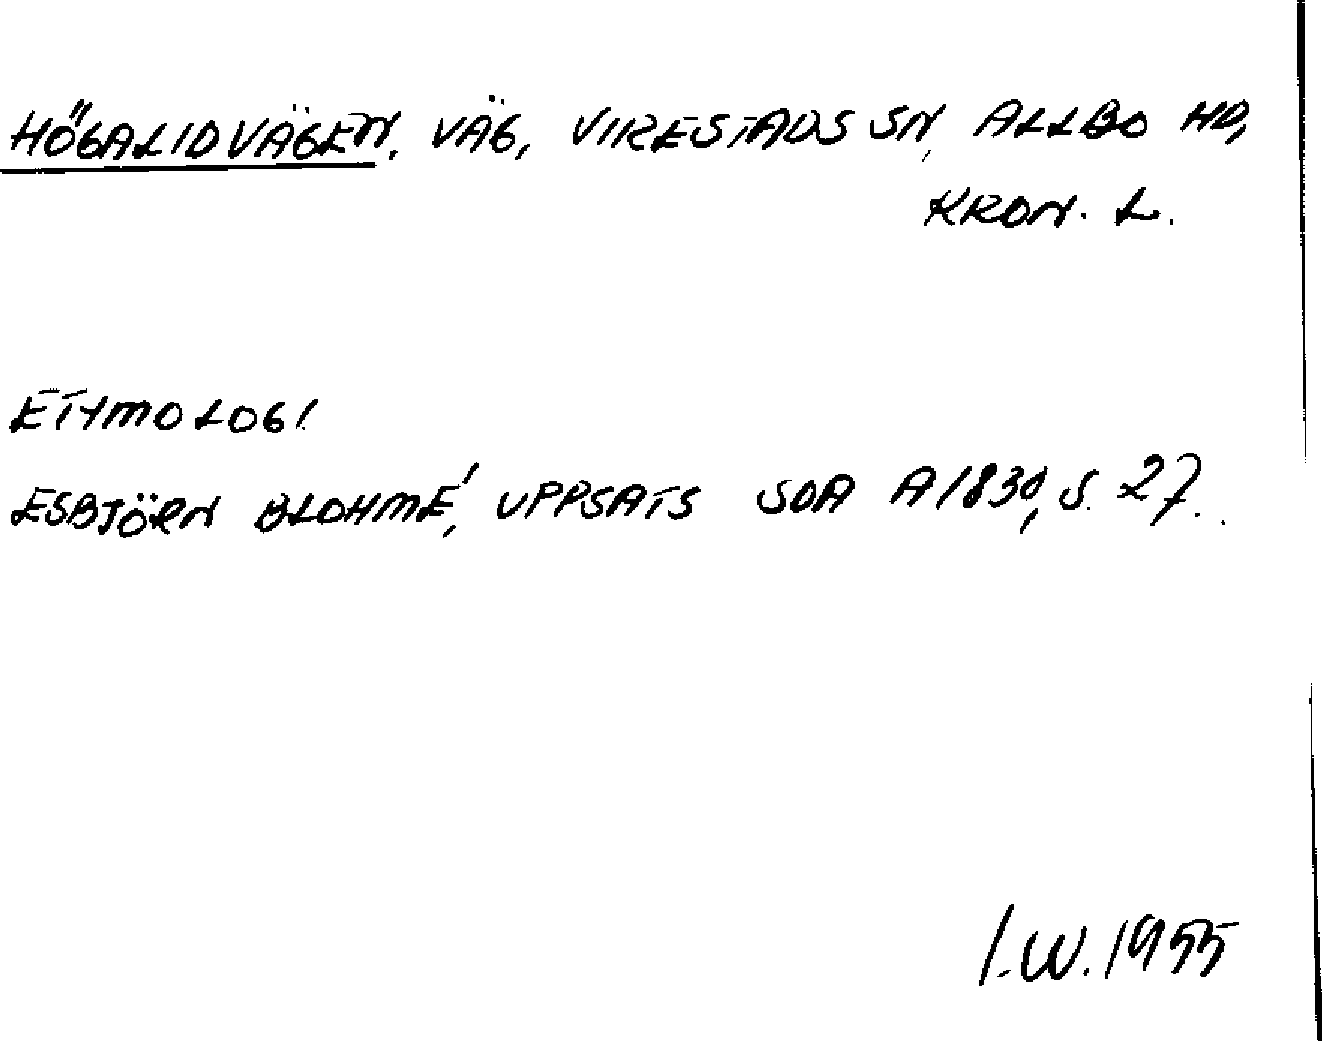 HÖGALIDVÄGEN, VÄG, VIRESTADS SN, ALLBO HD,
KRON. L.
ETYMOLOGI
ESBJÖRN BLOHMÉ, UPPSATS SOA A1830, S. 27.
I.W. 1955